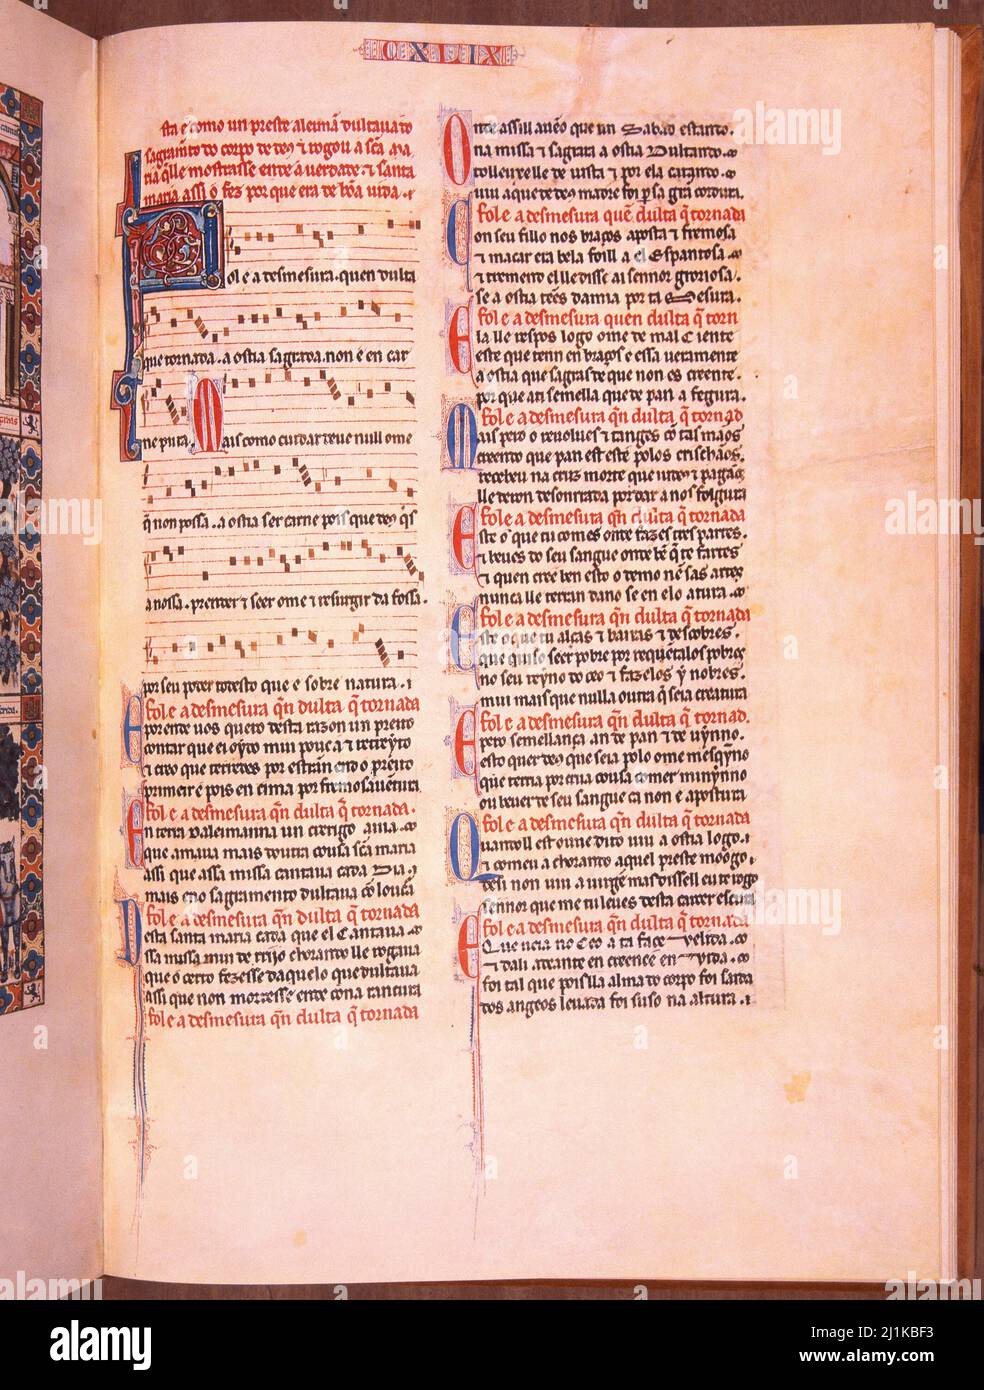 CXLIX
sta é como un preste aleimã dultava do
sagramẽto do corpo de deus τ rogou a scã ma
ria q̃lle mostrasse ende a verdade τ santa
maria assi o fez por que era de bõa vida.
ol e a desmesura. quen dulta
que tornada. a ostia sagrada. non é en car
ne pura. Mais como cuidar deve null ome
q̃ non possa. a ostia seer carne pois que deus q̃s
a nossa. prender τ seer ome τ resurgir da fossa.
por seu poder todesto que e sobre natura.
Fol e a desmesura q̃n dulta q̃ tornada
porende vos quero desta razon un preito
contar que ei oydo mui pouca τ retreyto
τ creo que terredes por estrãn end o preito
primeir e pois en cima por fremos aventura
Fol e a desmesura q̃n dulta q̃ tornada.
En terra d aleimanna un crerigo avia.
que amava mais doutra cousa scã maria
assi que assa missa cantava cada dia,
mais eno sagramento dultava cõ loucã
Fol e a desmesura q̃n dulta q̃ tornada
Desta santa maria cada que el cantava
ssa missa mui de rrijo chorando lle rogava
que o certo fezesse daquelo que dultava
assi que non morresse ende cona rancura
Fol e a desmesura q̃n dulta q̃ tornada
Onde assi ll avẽo que un sabado estando.
na missa τ sagrara a ostia dultando.
tolleuxelle de vista τ por ela catando.
viu aquede deus madre foi p sa grã cordura.
Fol e a desmesura quẽ dulta q̃ tornada
con seu fillo nos braços aposta τ fremosa
τ macar era bela foi ll a el espantosa.
τ tremendo elle disse ai sennor groriosa.
se a ostia tẽes dam ia por ta mesura.
Fol e a desmesura quen dulta q̃ torn
Ela lle respos logo ome de mal ciente
este que tenn en braços e essa veramente
a ostia que sagraste que non es creente.
por que ati semella que de pan a fegura.
Fol e a desmesura q̃n dulta q̃ tornad
Mais pero o revolves τ tanges cõ tas mãos
creendo que pan est este polos crischãos.
recebeu na cruz morte que judeus τ pagãos
lle deron desonrrada por dar a nos folgura
Fol e a desmesura q̃n dulta q̃ tornada
Este o que tu comes onde fazes tres partes.
τ beves do seu sangue onde bẽ q̃ te fartes
τ quen cree ben esto o demo nẽ sas artes
nunca lle terran dano se en elo atura.
Fol e a desmesura q̃n dulta q̃ tornada
Este o que tu alças τ baixas τ descobres.
que quiso seer pobre por requẽ dalos pobres
no seu reyno do ceo τ fazelos y nobres.
mui mais que nulla outra q̃ seia creatura
Fol e a desmesura q̃n dulta q̃ tornad.
Pero semellança an de pan τ de vynno.
esto quer deus que seia polo ome mesq̃yno
que terria por crua cousa comer minynno
ou bever de seu sangue ca non e apostura
Fol e a desmesura q̃n dulta q̃ tornada
Quando ll est ouve dito viu a ostia logo.
τ comeu a chorando aquel preste mõogo
desi non viu a virgẽ mas dissell eu te rogo
sennor que me tu leves desta carcer escura
Fol e a desmesura q̃n dulta q̃ tornada
Que veia no ceo a ta face velida.
τ dali adeante en creence en vida.
foi tal que pois ll a alma do corpo foi saida
dos angeos levada foi suso na altura.
alamy
Image ID: J1KBF3
www.alamy.com